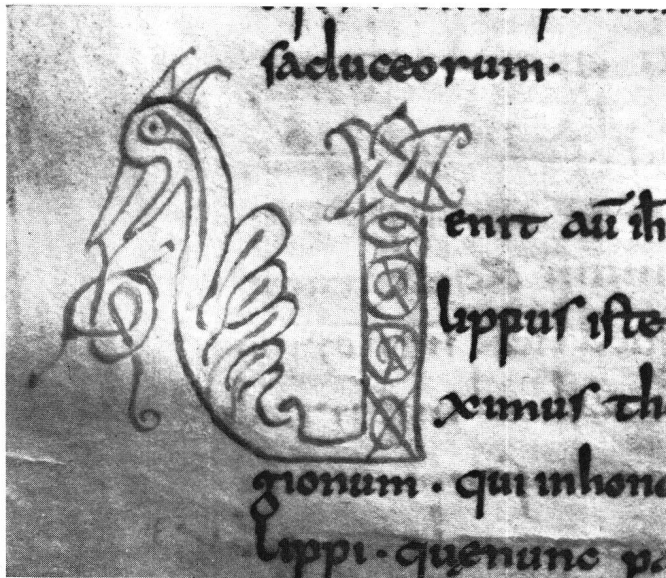 saduceorum·
Uenit aū ih̄
lippus iste
ximus th
gionum · qui inhono
lippi · quęnunc pa